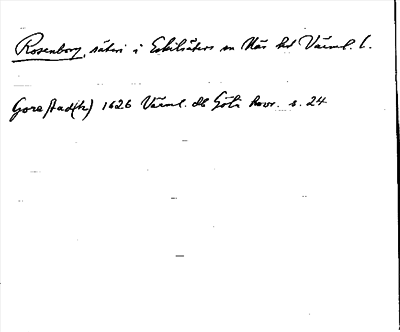 Rosenborg, säteri i Eskilsäters sn Näs hd Värml. l.
Gorestad(h) 1626 Värml. db Göta hovr. s. 24